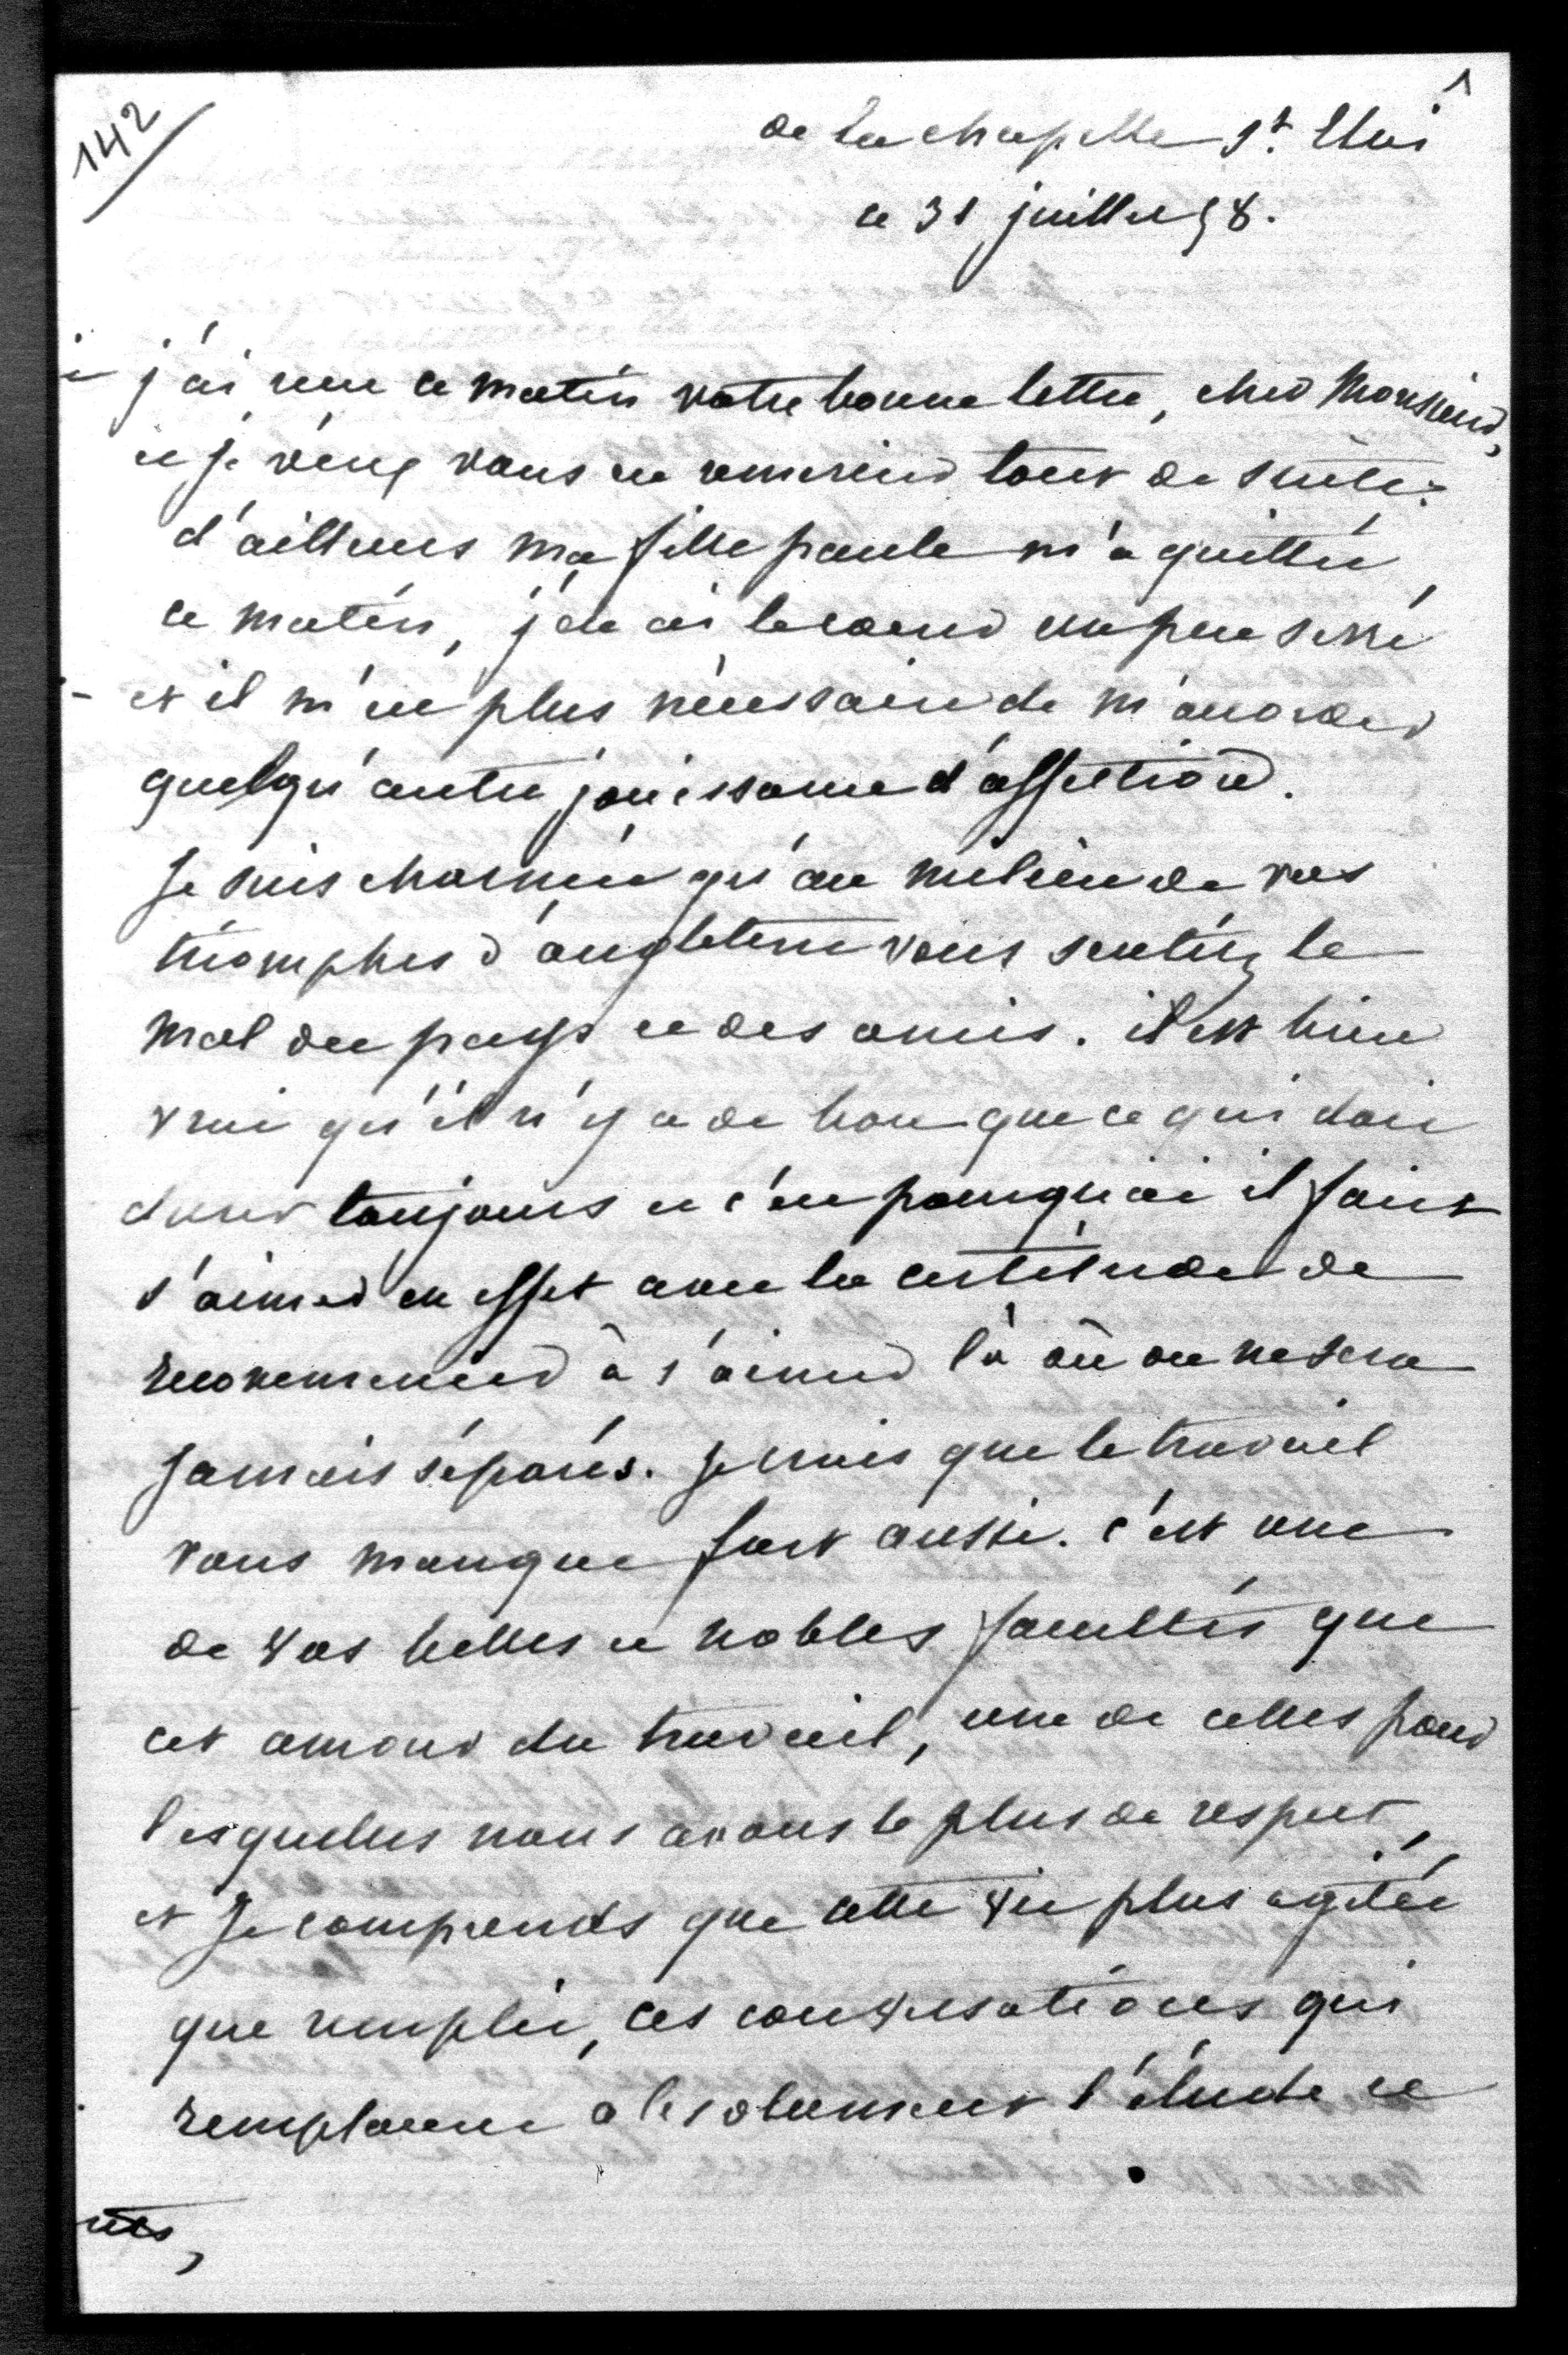 142
1
de la chapelle St. Eloi
ce 31 juillet 58.
j'ai reçu ce matin votre bonne lettre, cher Monsieur,
et je viens vous en remercier tout de suite.
d'ailleurs ma fille paule m'a quittée
ce matin, j'en ai le coeur un peu serré
et il m'est plus nécessaire de m'accorder
quelqu'autre jouissance d'affection.
Je suis charmée qu'au milieu de vos
triomphes d'angleterre vous sentiez le
mal du pays et des amis. il est bien
vrai qu'il n'y a de bon que ce qui doit
durer toujours et c'est pourquoi il faut
s'aimer en effet avec la certitude de
recommencer à s'aimer là où on ne sera
jamais séparés. Je crois que le travail
vous manque fort aussi. c'est une
de vos belles et nobles facultés que
cet amour du travail, une de celles pour
lesquelles nous avons le plus de respect,
et je comprends que cette vie plus agitée
que remplie, ces conversations qui
remplacent absolument l'étude et